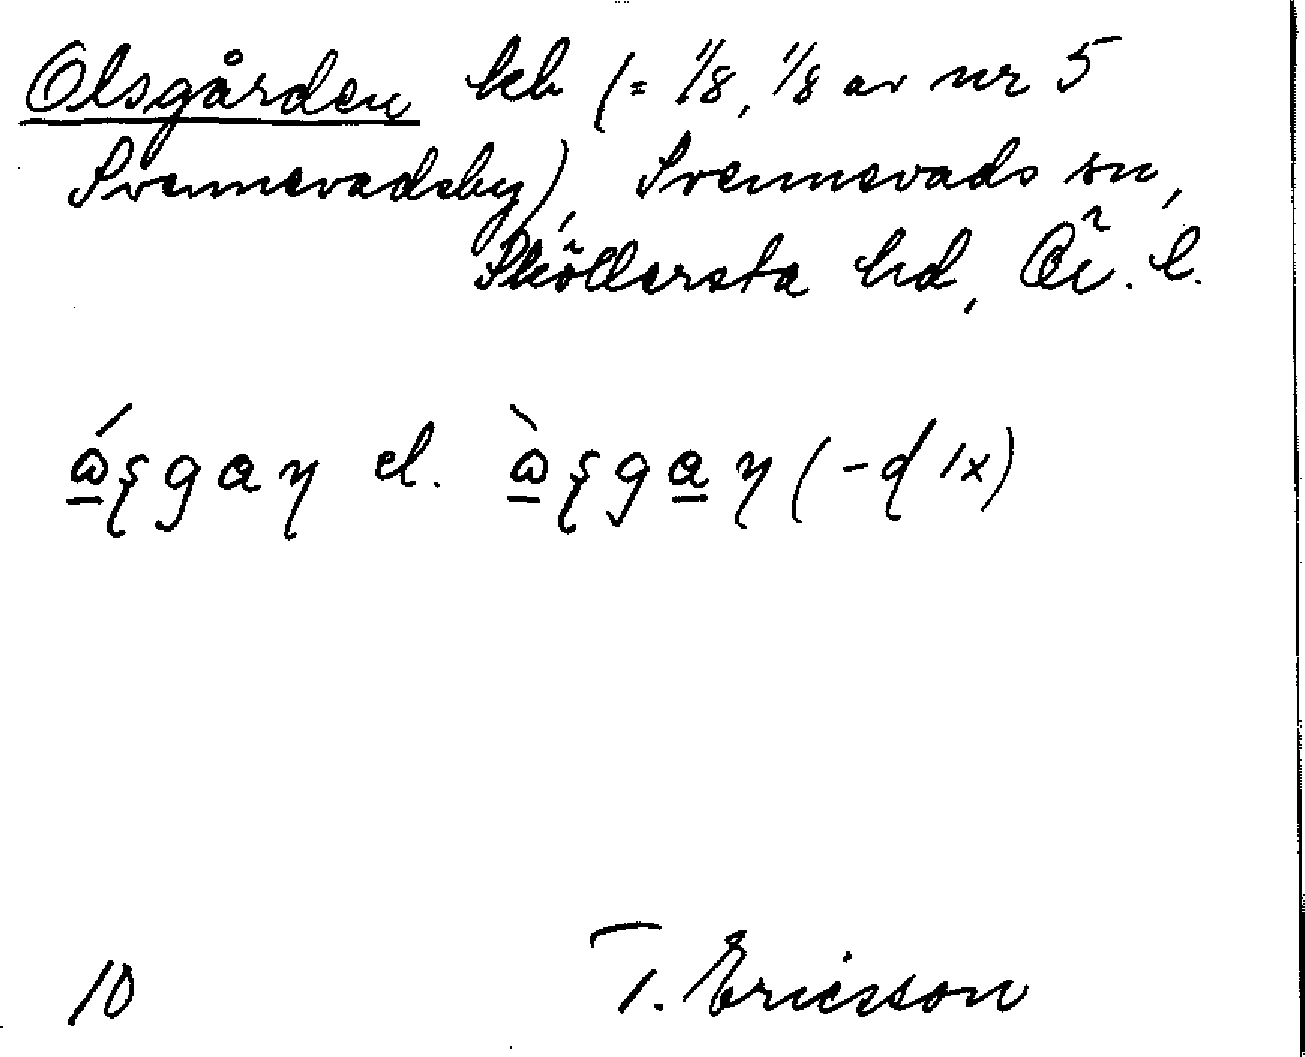 Olsgården lkb (= 1/8, 1/8 av nr 5
Svennevadsby), Svennevads sn,
Sköllersta hd, Ör. l.
el. (-d 1x)
10 T. Ericsson